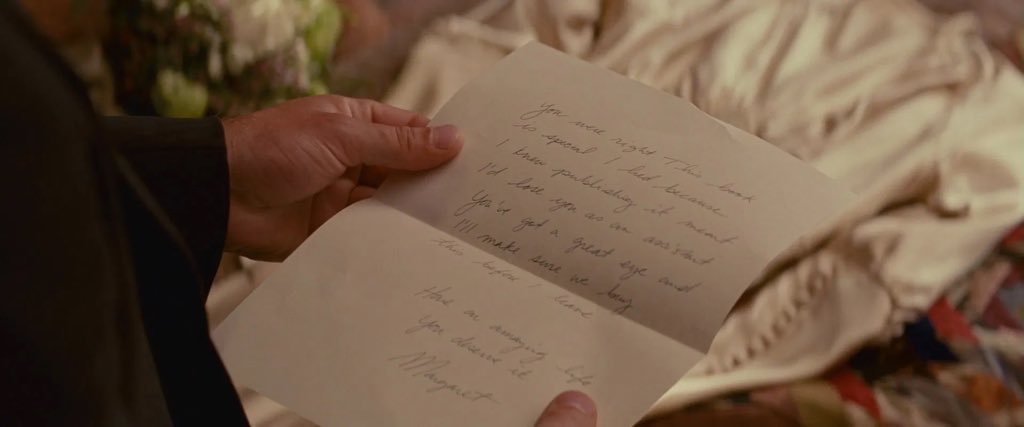 You were right This book
is special I lied because
I knew publishing it meant
I'd lose you as an assistant
You've got a great eye and
I'll make sure we buy
this before I leave
Have an amazing life
You deserve it
Margaret